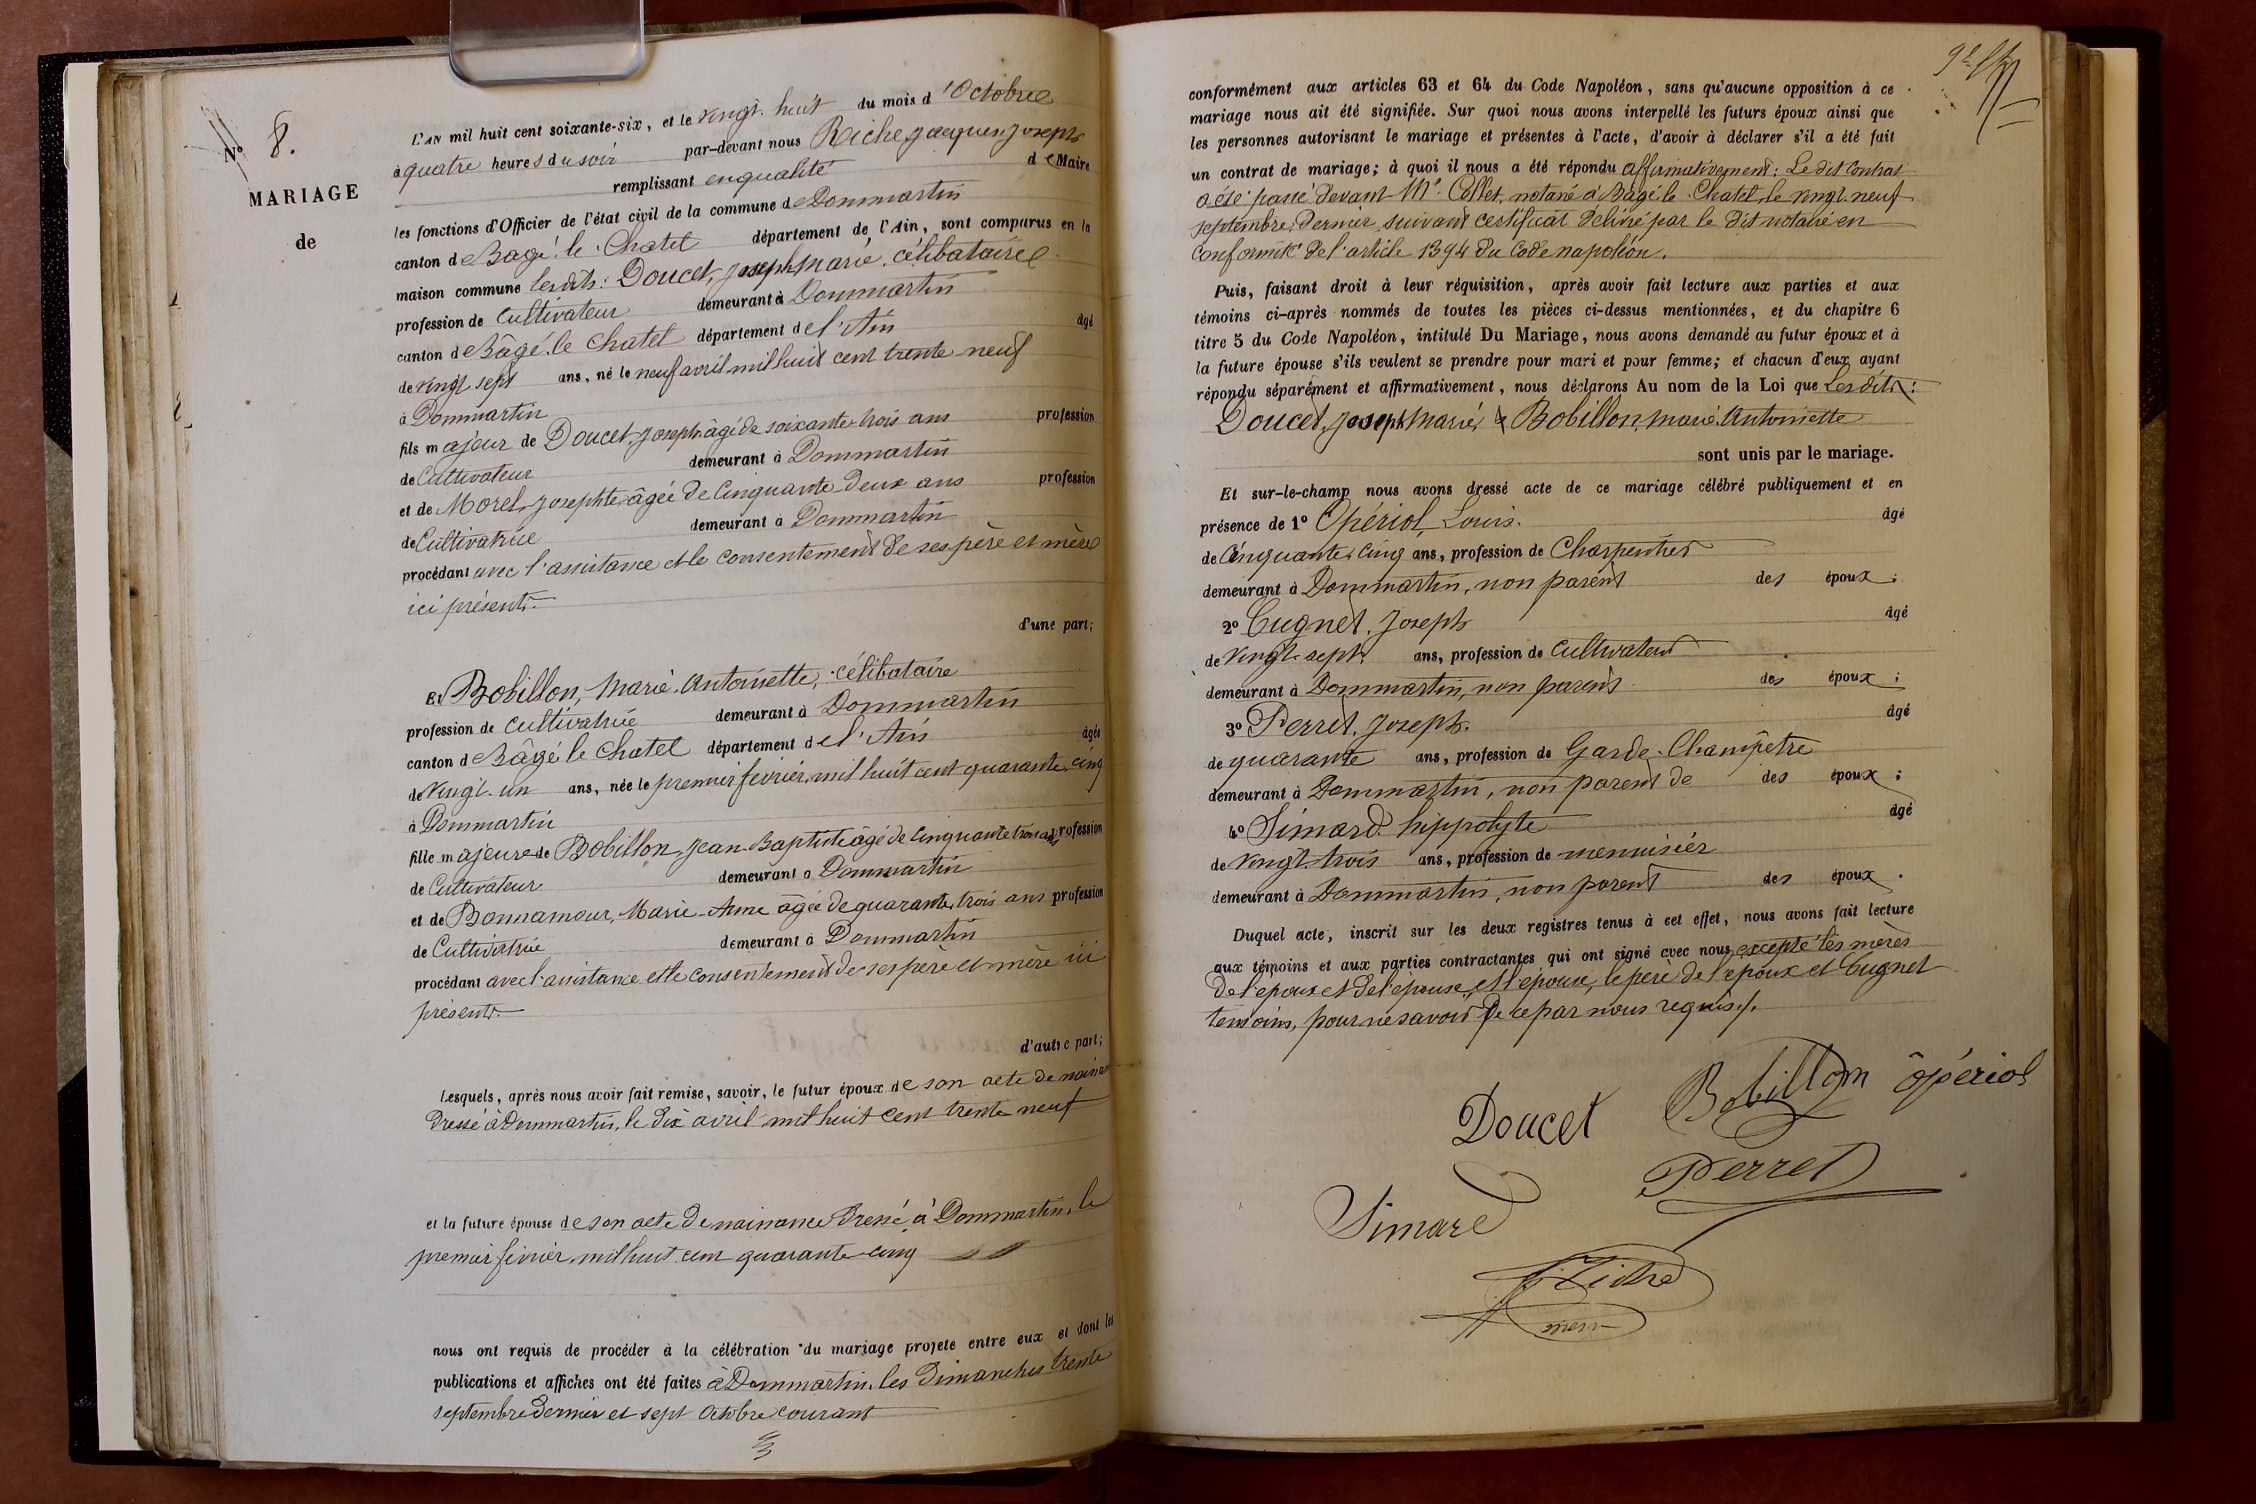 N° 8.
MARIAGE
de
L'AN mil huit cent soixante-six, et le vingt-huit du mois d'Octobre
à quatre heures du soir par-devant nous Riche, Jacques Joseph
remplissant en qualité de Maire
les fonctions d'Officier de l'état civil de la commune de Dommartin
canton de Bagé-le-Chatel département de l'Ain, sont comparus en la
maison commune lesdits: Doucet, Joseph Marie, célibataire
profession de Cultivateur demeurant à Dommartin
canton de Bâgé-le-Chatel département de l'Ain âgé
de vingt sept ans, né le neuf avril mil huit cent trente neuf
à Dommartin
fils majeur de Doucet, Joseph âgé de soixante trois ans profession
de Cultivateur demeurant à Dommartin
et de Morel, Josephte âgée de Cinquante-deux ans profession
de Cultivatrice demeurant à Dommartin
procédant avec l'assistance et le consentement de ses père et mère
ici présents.
d'une part;
Et Bobillon, Marie-Antoinette, célibataire
profession de Cultivatrice demeurant à Dommartin
canton de Bâgé le Chatel département de l'Ain âgée
de vingt-un ans, née le premier février mil huit cent quarante-cinq
à Dommartin
fille majeure de Bobillon, Jean-Baptiste âgé de Cinquante trois ans profession
de Cultivateur demeurant à Dommartin
et de Bonnamour, Marie-Anne âgée de quarante trois ans profession
de Cultivatrice demeurant à Dommartin
procédant avec l'assistance et le consentement de ses père et mère ici
présents.
d'autre part;
Lesquels, après nous avoir fait remise, savoir, le futur époux de son acte de naissance
dressé à Dommartin, le dix avril mil huit cent trente neuf
et la future épouse de son acte de naissance dressé à Dommartin, le
premier février mil huit cent quarante-cinq
nous ont requis de procéder à la célébration du mariage projeté entre eux et dont les
publications et affiches ont été faites à Dommartin, les Dimanches trente
septembre dernier et sept octobre courant
conformément aux articles 63 et 64 du Code Napoléon, sans qu'aucune opposition à ce
mariage nous ait été signifiée. Sur quoi nous avons interpellé les futurs époux ainsi que
les personnes autorisant le mariage et présentes à l'acte, d'avoir à déclarer s'il a été fait
un contrat de mariage; à quoi il nous a été répondu affirmativement: Le dit Contrat
a été passé devant Me Collet, notaire à Bâgé-le-Chatel, le vingt-neuf
septembre dernier suivant certificat délivré par le dit notaire en
Conformité de l'article 1394 du Code napoléon.
Puis, faisant droit à leur réquisition, après avoir fait lecture aux parties et aux
témoins ci-après nommés de toutes les pièces ci-dessus mentionnées, et du chapitre 6
titre 5 du Code Napoléon, intitulé Du Mariage, nous avons demandé au futur époux et à
la future épouse s'ils veulent se prendre pour mari et pour femme; et chacun d'eux ayant
répondu séparément et affirmativement, nous déclarons Au nom de la Loi que Lesdits:
Doucet, Joseph Marie, & Bobillon, Marie Antoinette
sont unis par le mariage.
Et sur-le-champ nous avons dressé acte de ce mariage célébré publiquement et en
présence de 1° Opériol, Louis. âgé
de Cinquante-cinq ans, profession de Charpentier
demeurant à Dommartin, non parent des époux;
2° Cugnet, Joseph âgé
de vingt-sept ans, profession de Cultivateur
demeurant à Dommartin, non parent des époux;
3° Perret, Joseph. âgé
de quarante ans, profession de Garde-Champêtre
demeurant à Dommartin, non parent de des époux;
4° Simard hippolyte âgé
de vingt-trois ans, profession de menuisier
demeurant à Dommartin, non parent des époux.
Duquel acte, inscrit sur les deux registres tenus à cet effet, nous avons fait lecture
aux témoins et aux parties contractantes qui ont signé avec nous excepté les mères
de l'époux et de l'épouse, et l'épouse, le père de l'époux et Cugnet
témoins, pour ne savoir de ce par nous requis./.
Doucet Bobillon opériol
Perret
Simard
maire